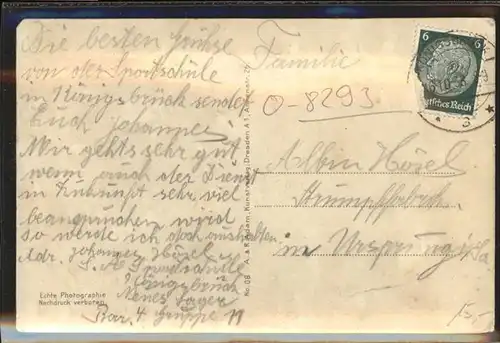 Die besten Grüße
von der Sportschule
in Königsbrück sendet
Euch Johannes
Mir gehts sehr gut
wenn auch der Dienst
in Zukunft sehr viel
beanspruchen wird
so werde ich doch aushalten
Adr. Johannes Hösel
Sportschule
Königsbrück
Neues Lager
Bar. 4 Gruppe 11
Echte Photographie
Nachdruck verboten
No. 08
Dresden A 1
Familie
0-8293
Albin Hösel
Strumpffabrik
in Ursprung i/Sa
6 6
Deutsches Reich
15,-